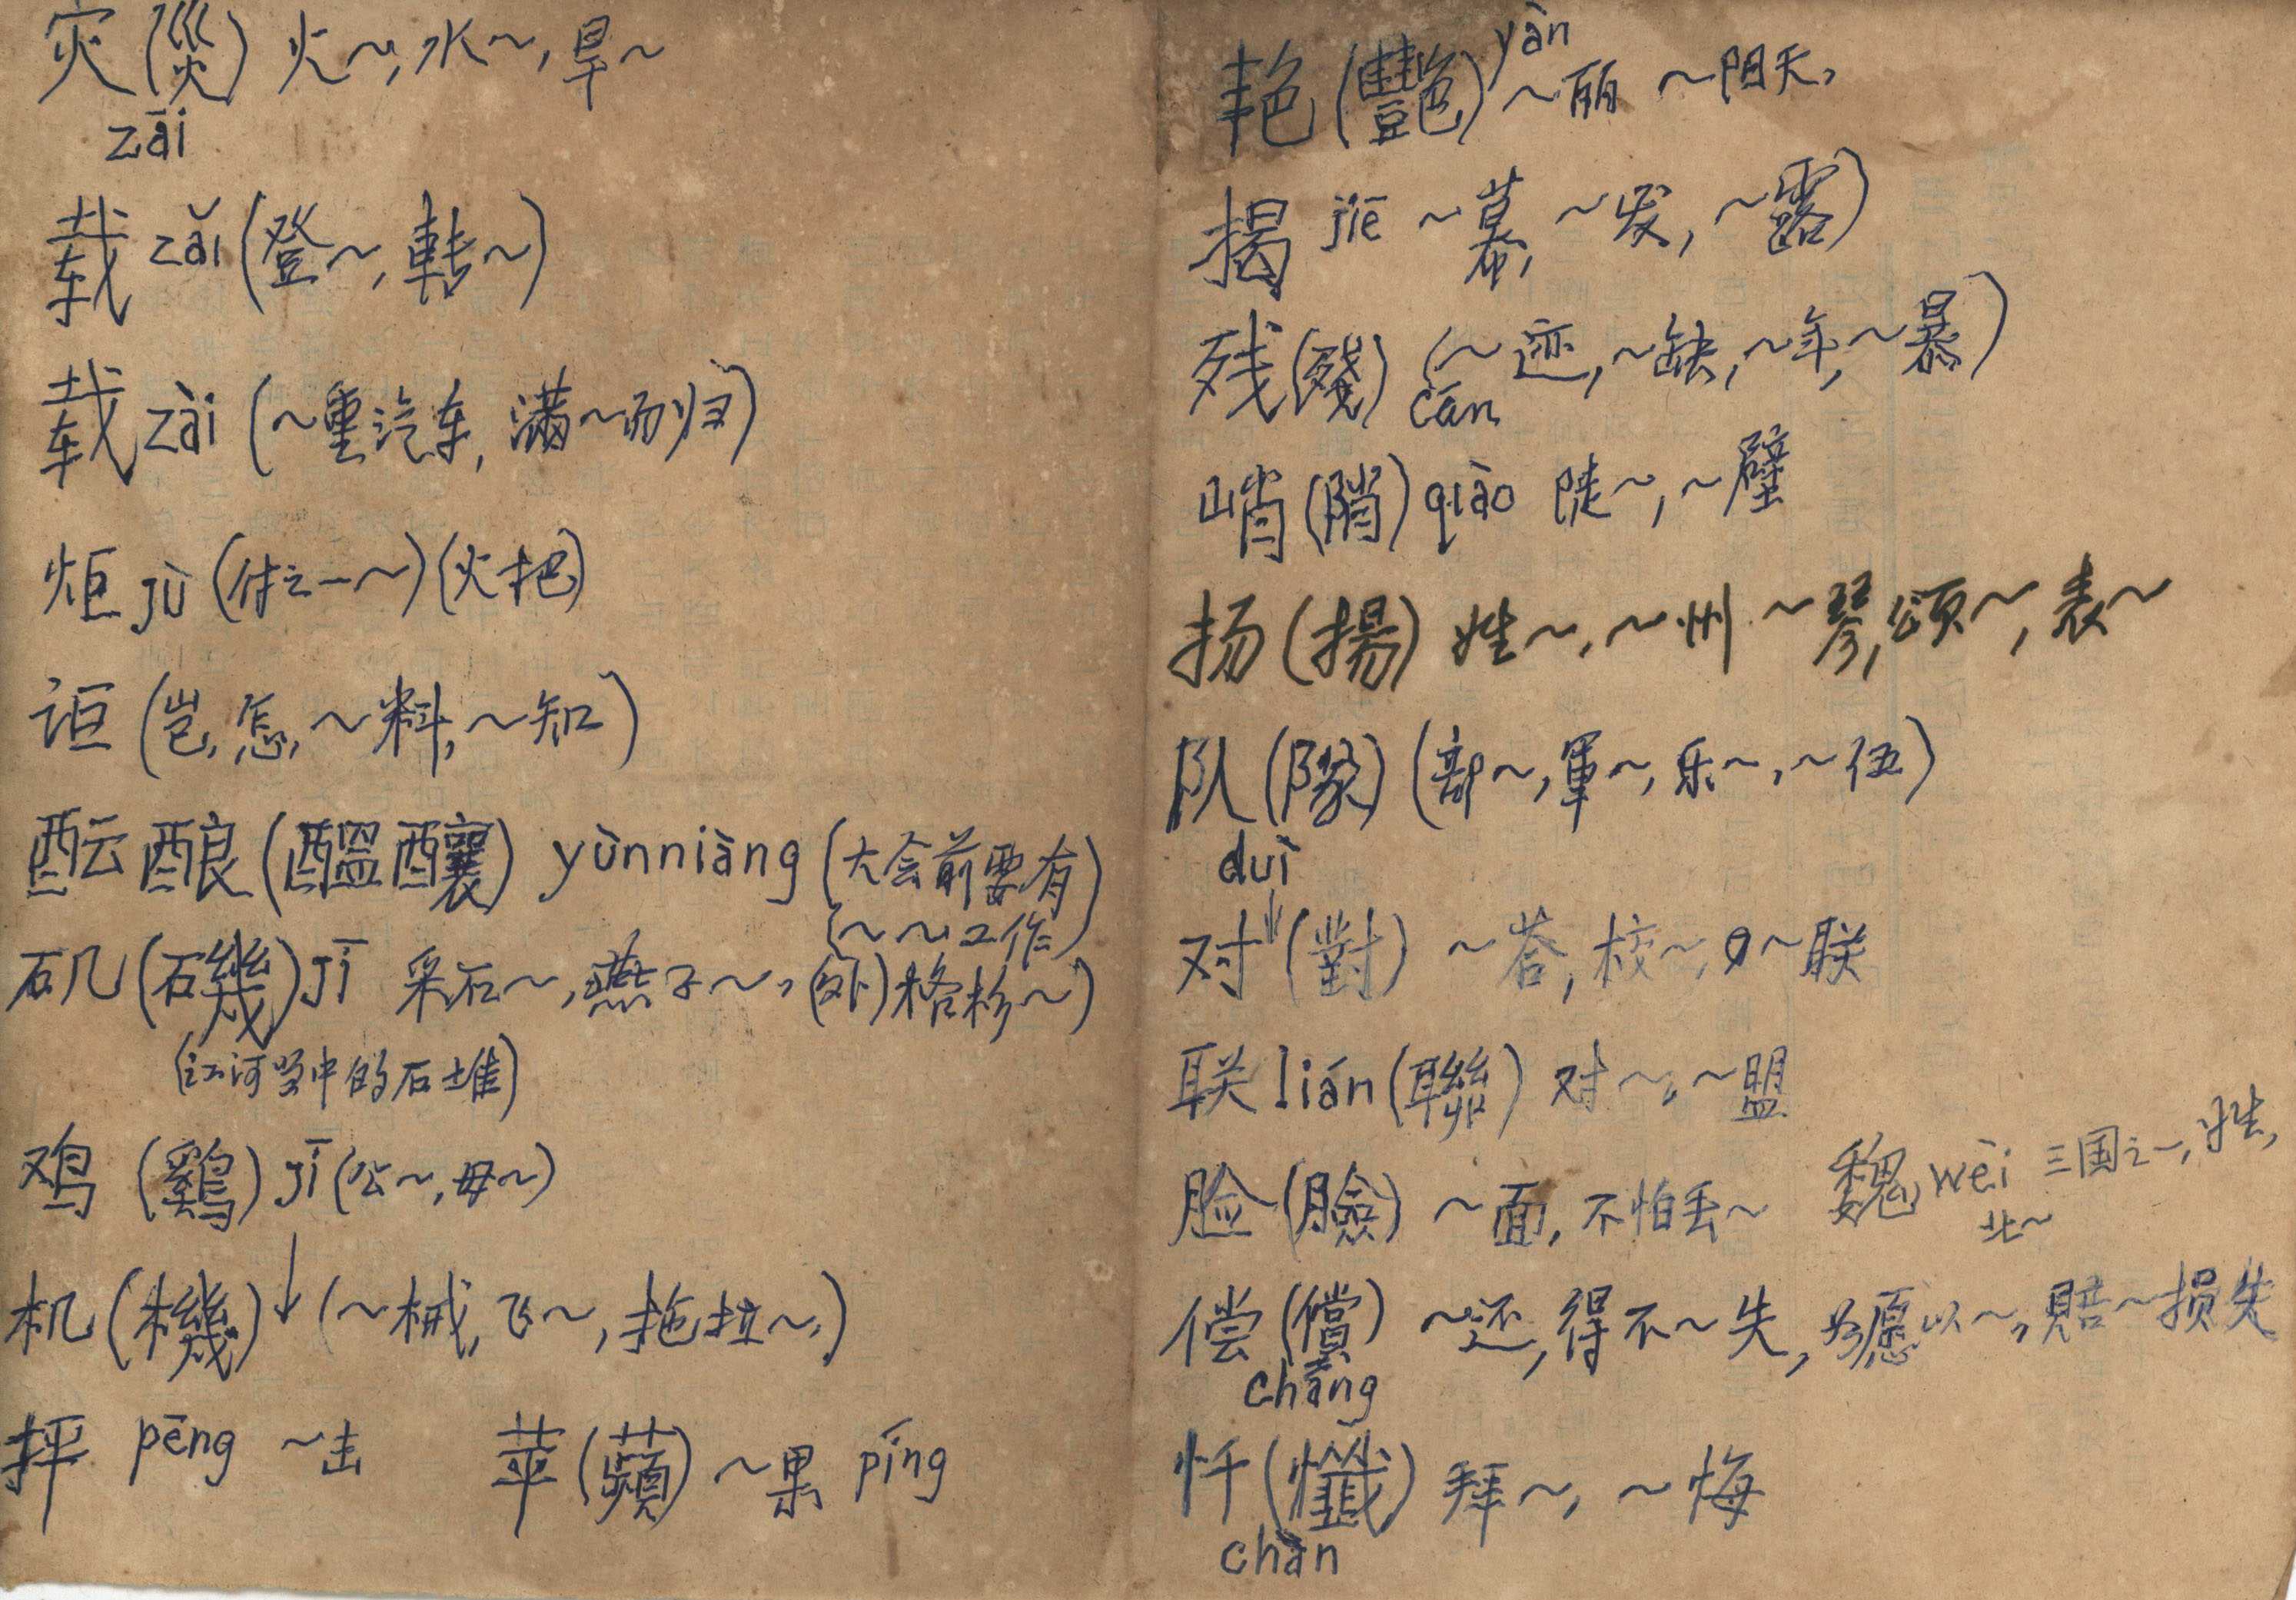 灾(災) 火～,水～,旱～
zāi
载 zǎi (登～,転～)
载 zài (～重汽车,满～而归)
炬 jù (付之一～)(火把)
讵 (岂,怎,～料,～知)
酝酿(醖釀) yùnniàng (大会前要有
～～工作)
矶(磯) jī 采石～,燕子～,(外)格杉～)
(江河当中的石堆)
鸡 (鷄) jī (公～,母～)
机(機)↓(～械,飞～,拖拉～,)
抨 pēng ～击 苹(蘋) ～果 píng
艳(艷) yàn ～丽 ～阳天,
揭 jiē ～幕,～发,～露)
残(殘) cān (～迹,～缺,～年,～暴)
峭(陗) qiào 陡～,～壁
扬(揚) 姓～,～州 ～琴,颂～,表～
队(隊) (部～,軍～,乐～,～伍)
duì
对〃(對) ～答,校～,～联
联 lián (聯) 对～,～盟
脸(臉) ～面,不怕丢～
魏 wèi 三国之一,姓,
北～
偿(償) ～还,得不～失,如愿以～,賠～损失
cháng
忏(懺) 拜～,～悔
chàn